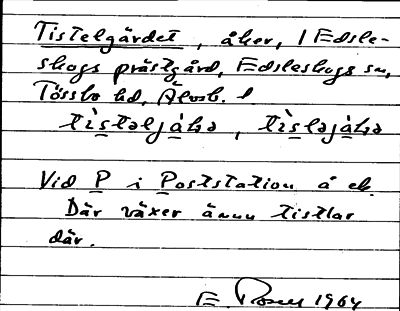 Tistelgärdet, åker, 1 Edsle-
skogs prästgård, Edsleskogs sn,
Tössbo hd, Älvsb. l
tìstəljáɷə, tìsləjáɷə
Vid P i Poststation å ek.
Där växer ännu tistlar
där.
E. 1964